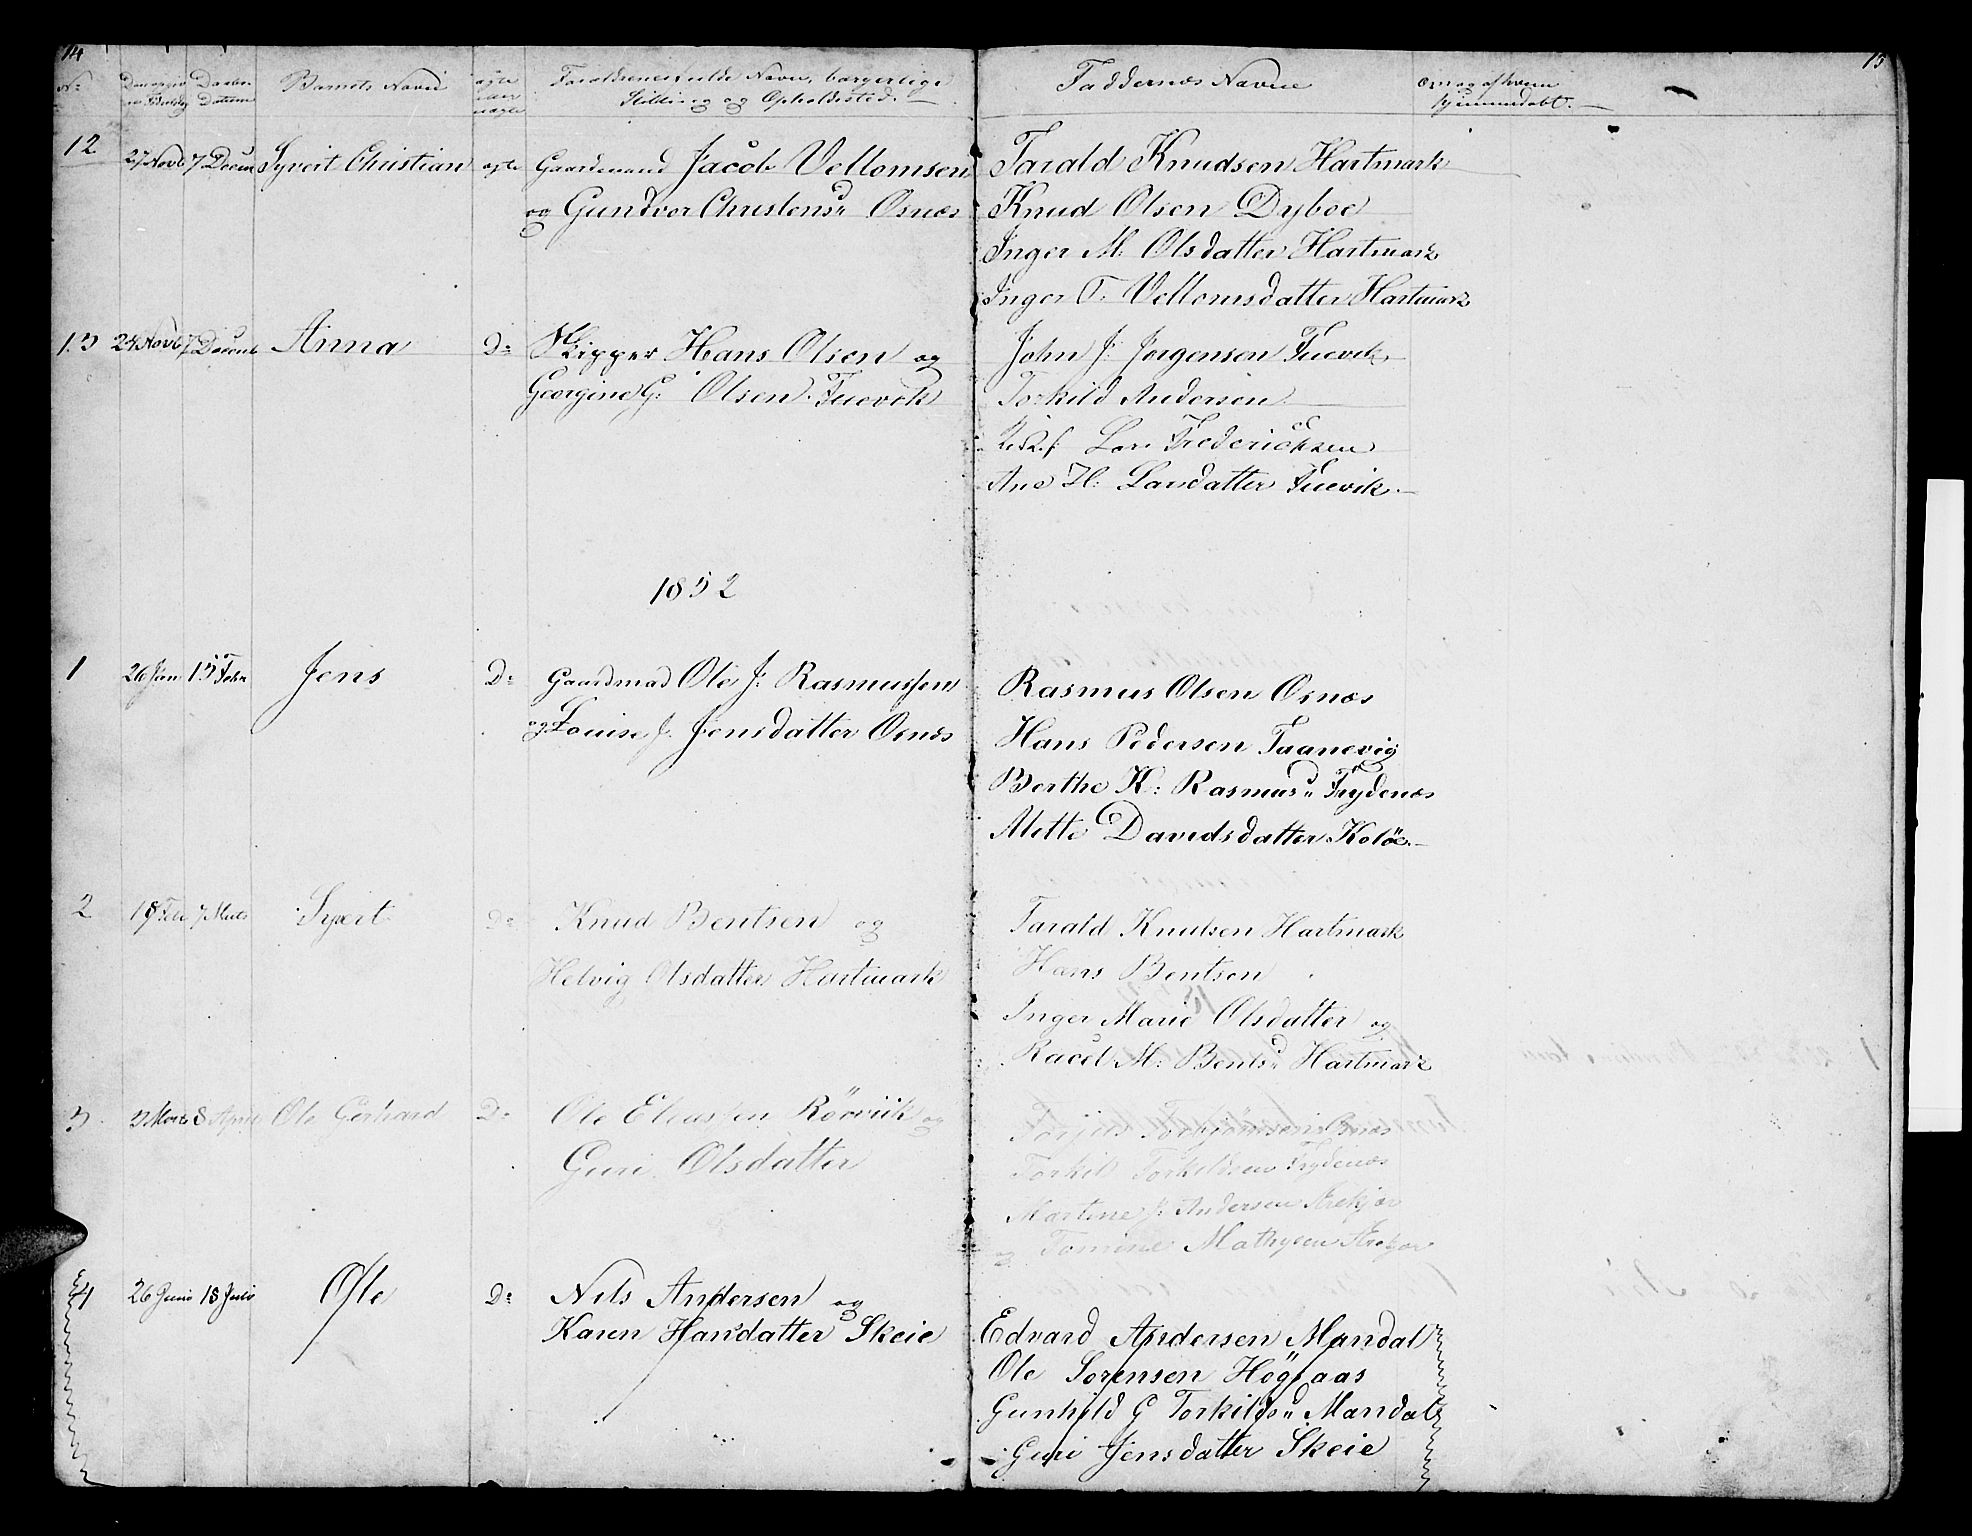 14
15
No
Barnets Navn
ægte eller uægte
Forældrenes fulde Navn, borgerlige
Stilling og Opholdssted.
Faddernes Navne
om og af hvem
hjemmedøbt.
12 27 Novb 7 Decem Syvert Christian ægte Gaardmand Jacob Vellomsen
og Gundvor Christensd Osnæs
Tarald Knudsen Hartmark
Knud Olsen Dyboe
Inger M: Olsdatter Hartmark
Inger T. Vellomsdatter Hartmark
13 24 Novb 7 Decemb Anna Do Skipper Hans Olsen og
Georgine G: Olsen Tuevik
John J: Jorgensen Tuevik
Torkild Andersen
Lars Frederichsen
Ane H: Larsdatter Tuevik
1852
1 26 Jan 15 Febr Jens Do Gaardmad Ole J: Rasmussen
og Louise J. Jensdatter Osnæs
Rasmus Olsen Osnæs
Hans Pedersen Taanevig
Berthe K: Rasmusd Frydenæs
Mette Davidsdatter Koløe
2 18 Feb 7 Marts Syvert Do Knud Bentsen og
Helvig Olsdatter Hartmark
Tarald Knutsen Hartmark
Hans Bentsen
Inger Marie Olsdatter og
Racel M: Bentsd Hartmark
3 3 Marts 8 April Ole Gerhard Do Ole Eliassen Röövik og
Guri Olsdatter
Torjus Torbjörnsen Osnæs
Torkil Torkildsen Frydenæs
Martine J: Andersen Arekjær
og Tomine Mathysen Arekjær
4 26 Juni 18 Juli Ole Do Nils Andersen og
Karen Hansdatter Skeie
Edvard Andersen Mandal
Ole Sorensen Högsaas
Gunhild G Torkildsd Mandal
Guri Jensdatter Skeie